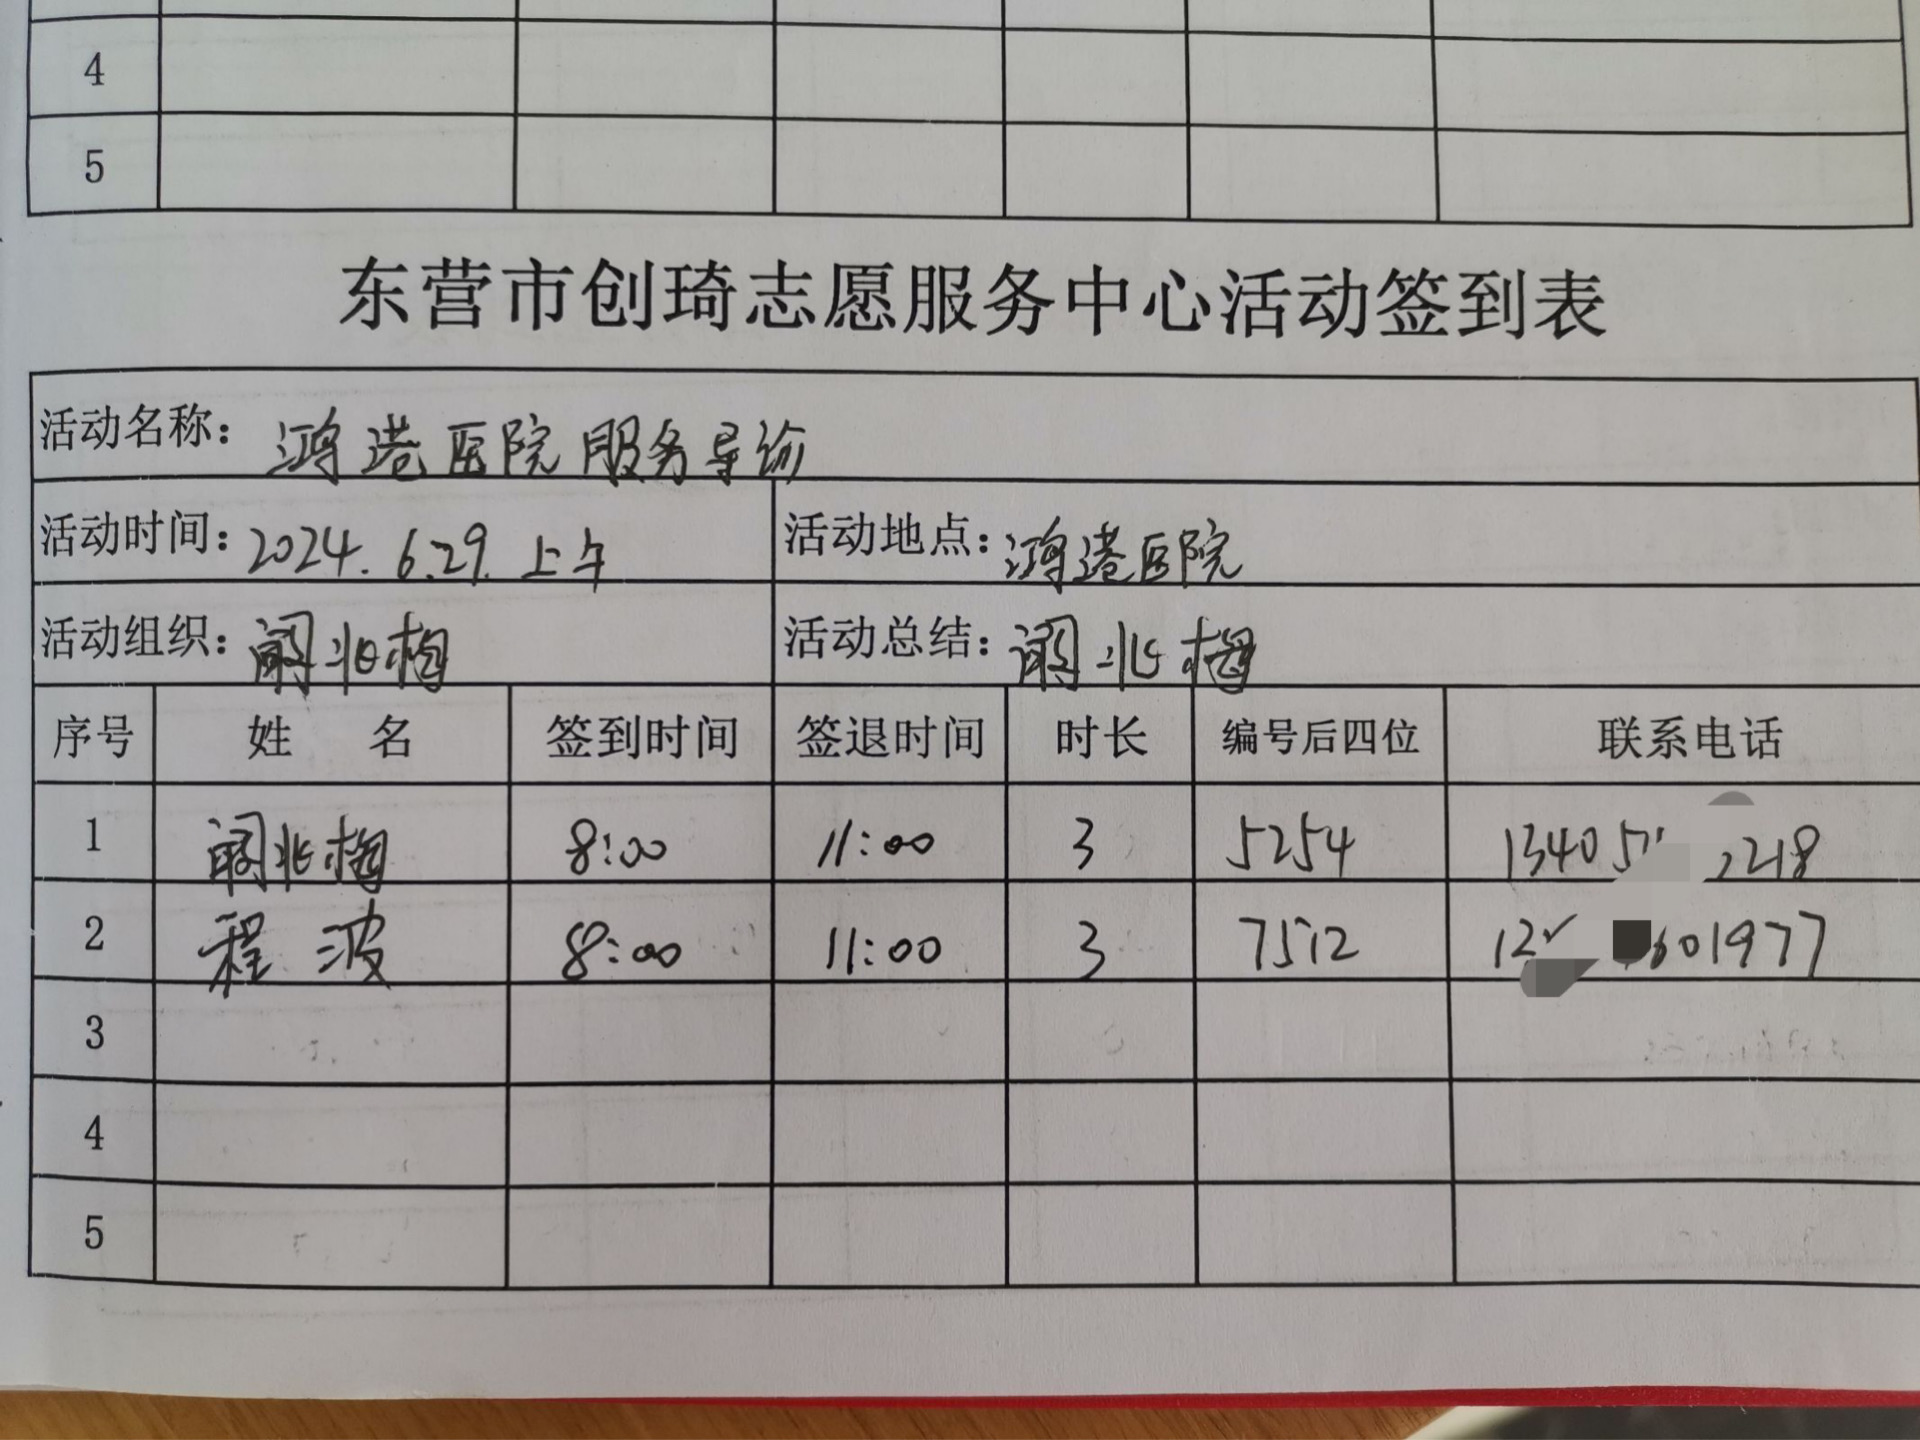 4
5
东营市创琦志愿服务中心活动签到表
活动名称：鸿港医院服务导诊
活动时间：2024.6.29.上午 活动地点：鸿港医院
活动组织：阚北梅 活动总结：阚北梅
序号 姓名 签到时间 签退时间 时长 编号后四位 联系电话
1 阚北梅 8:00 11:00 3 5254 13405 218
2 程波 8:00 11:00 3 7512 601977
3
4
5